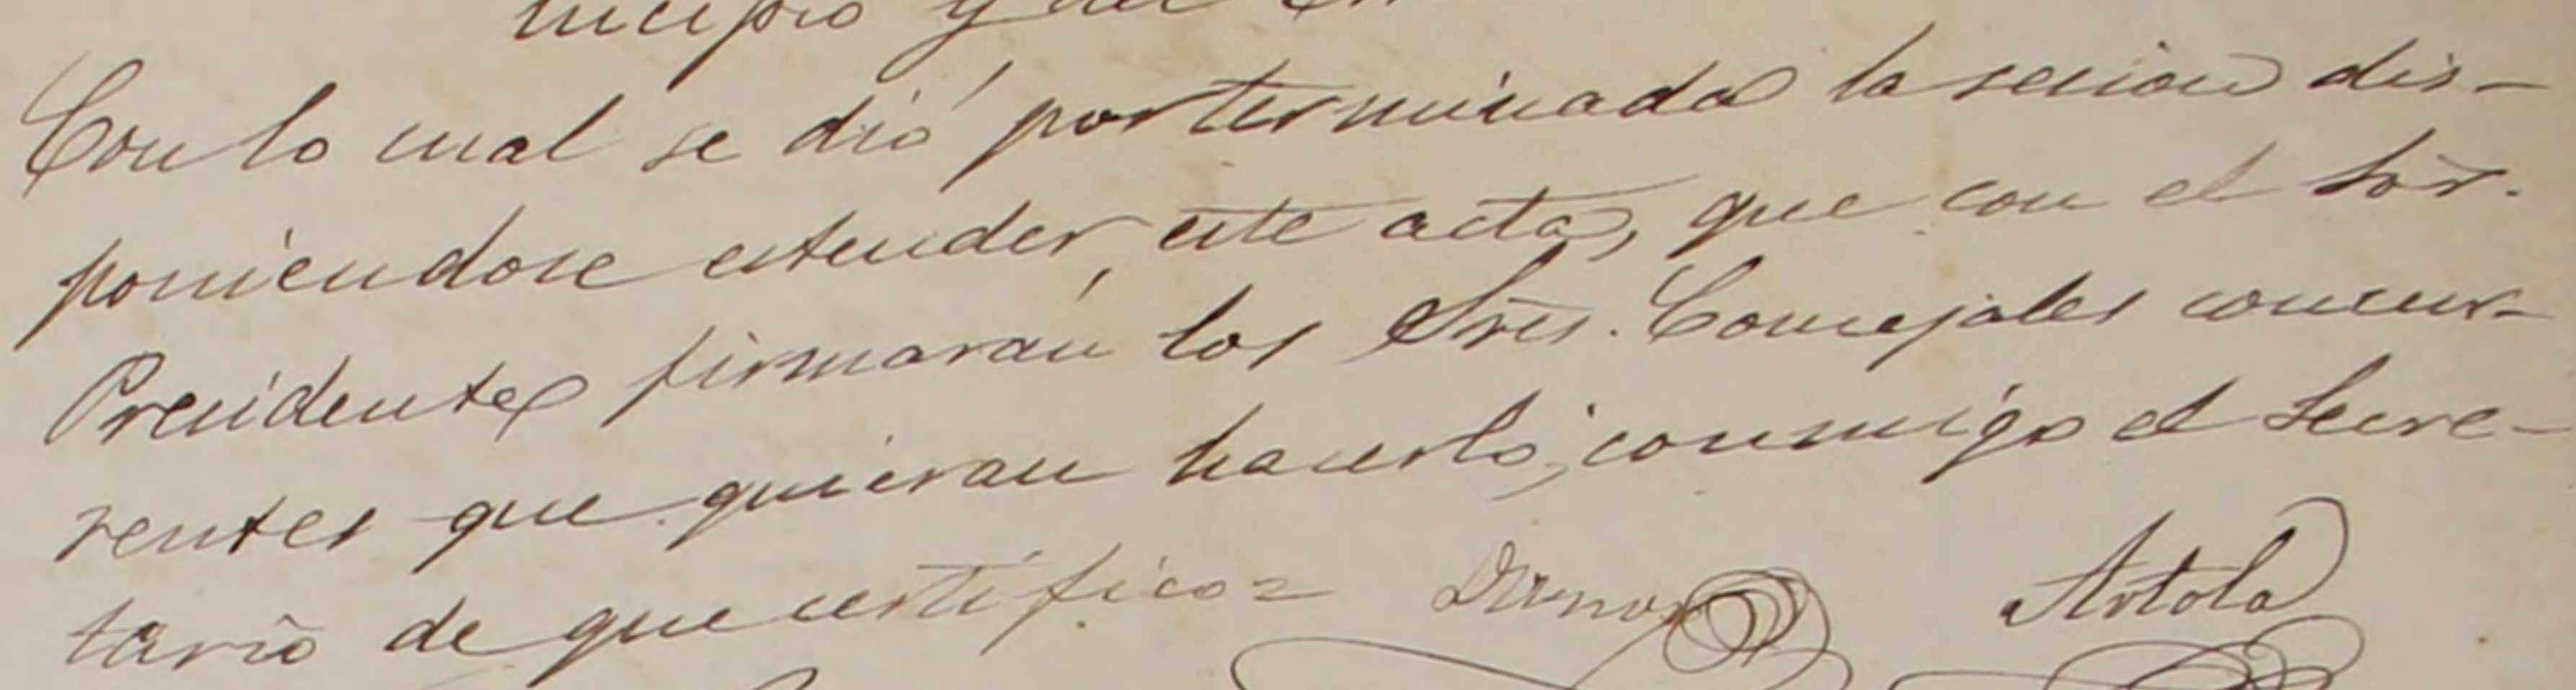 Con lo cual se dió por terminada la sesion dis-
poniendose estender este acta, que con el Sor.
Presidente firmarán los Sres. Concejales concur-
rentes que quieran hacerlo, conmigo el Secre-
tario de que certifico=
Artola